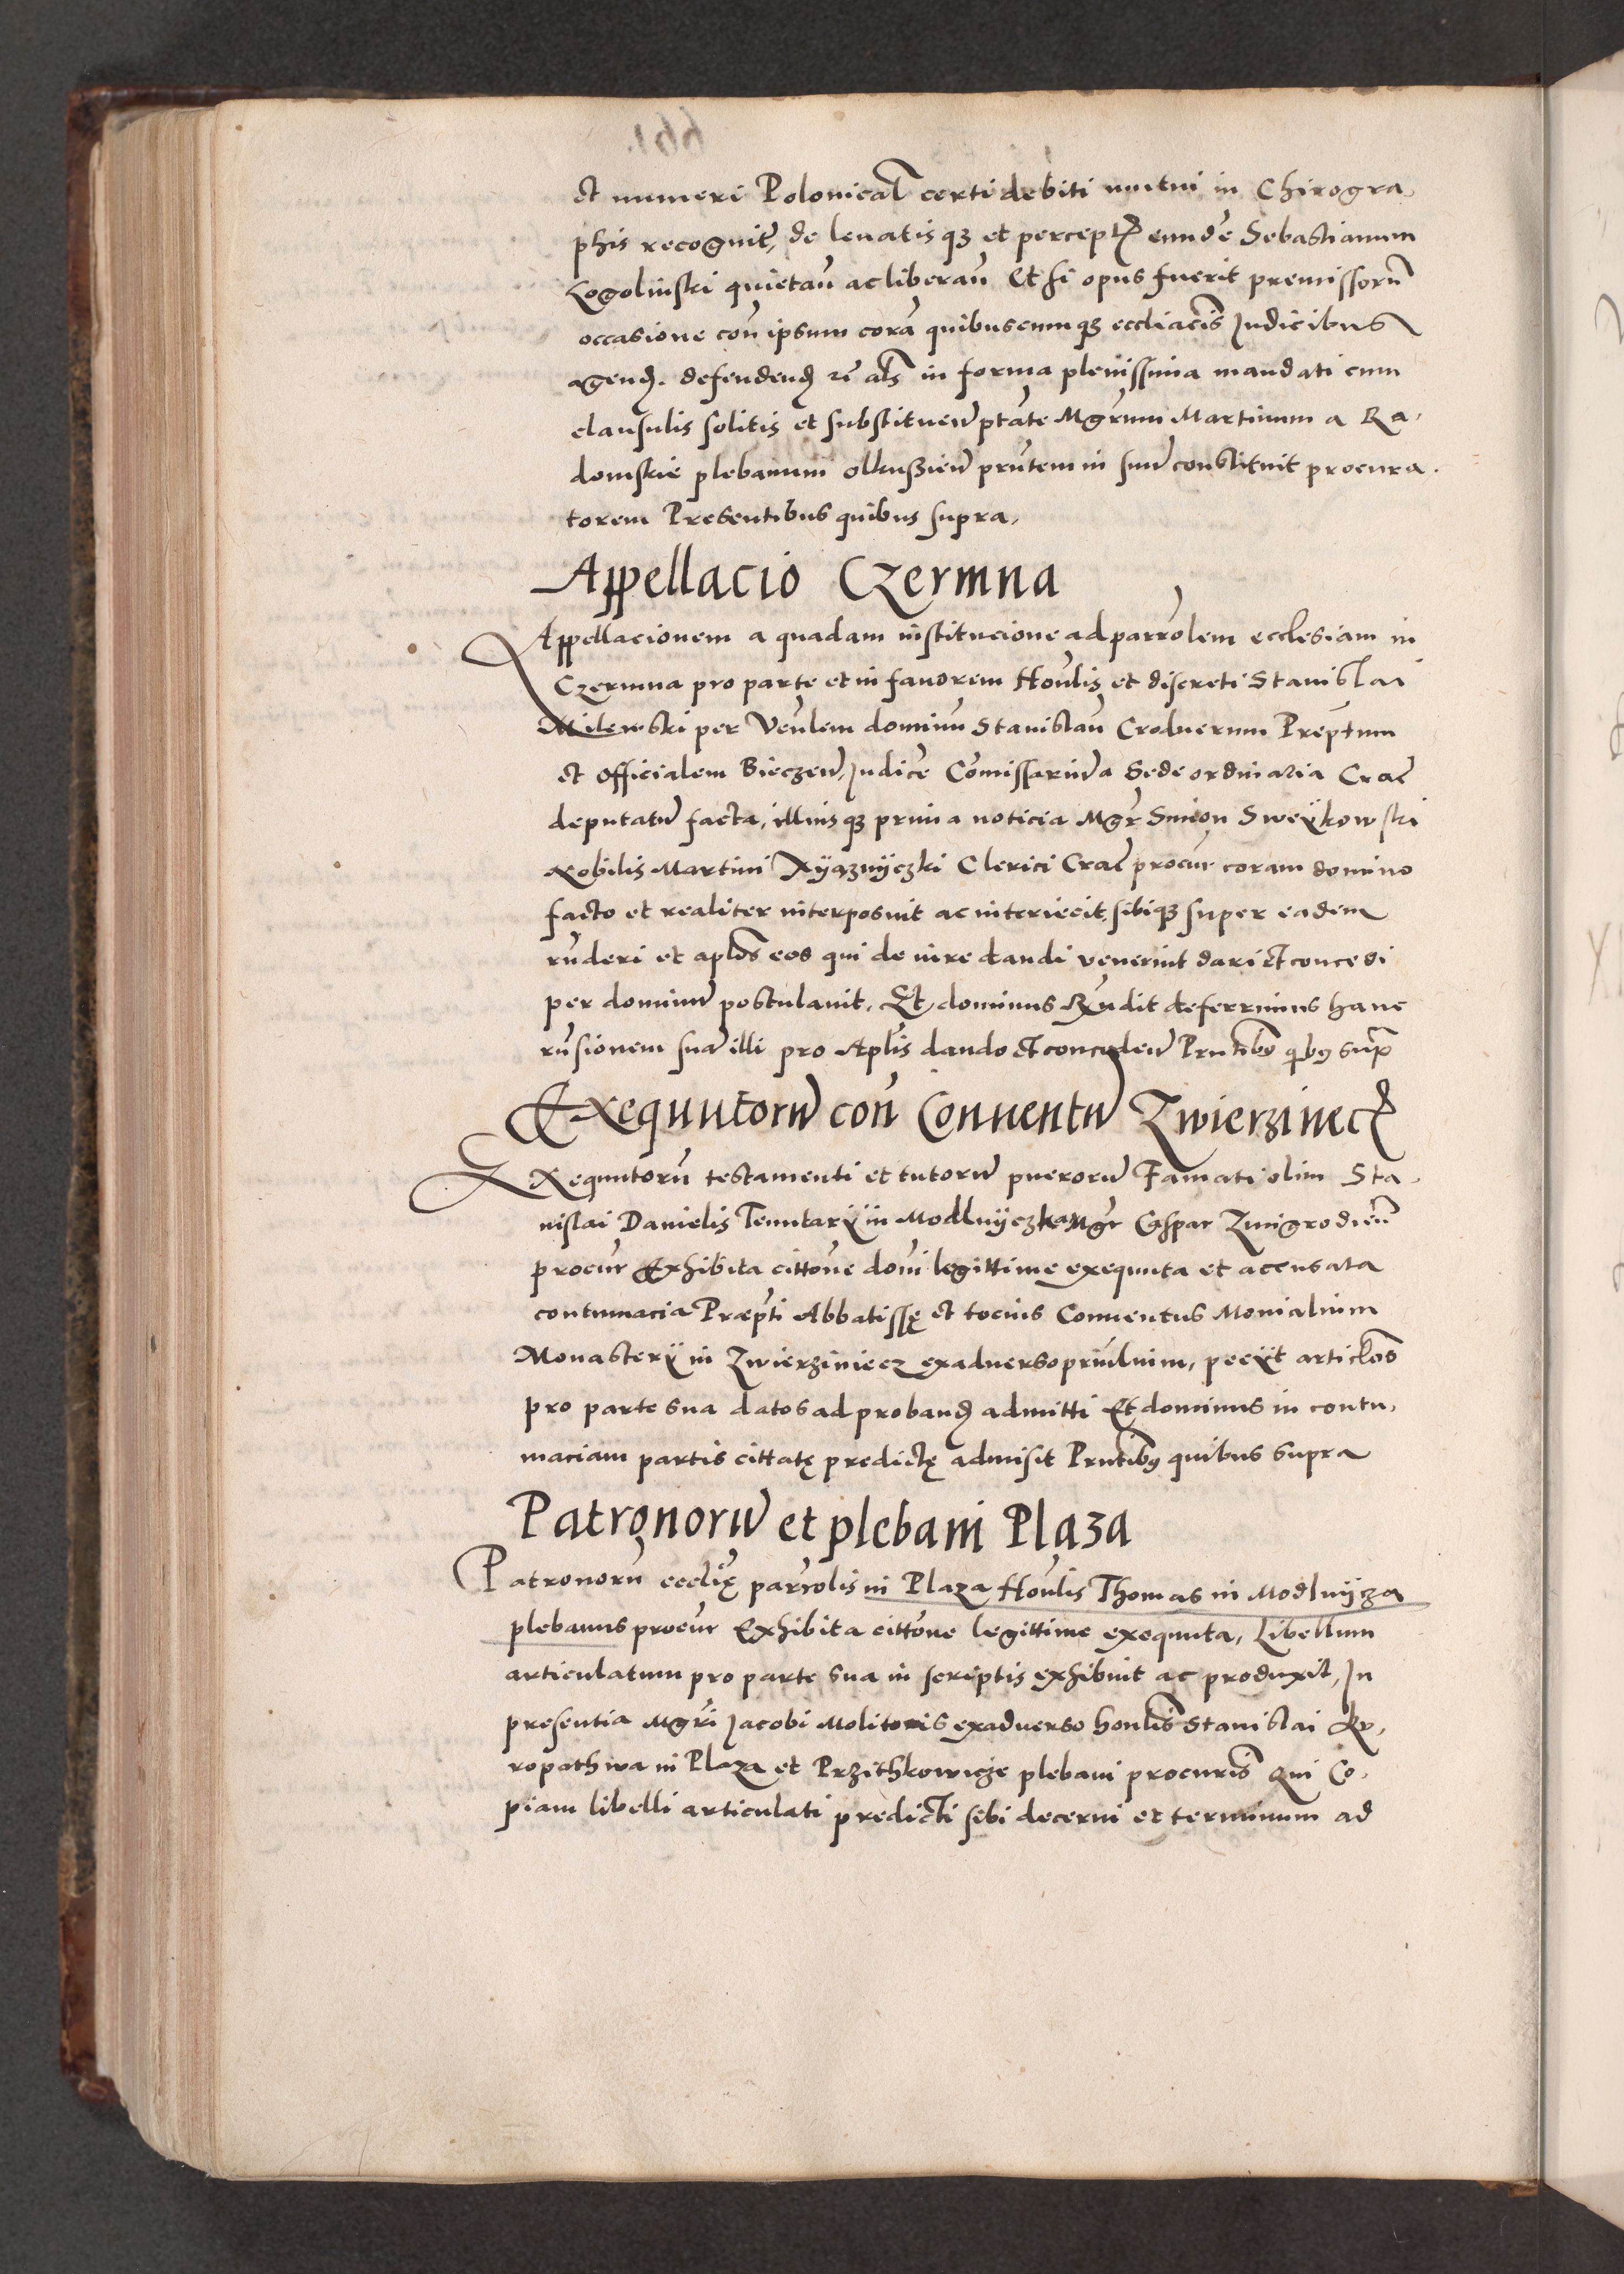 et numeri Polonical certi debiti mutui in Chirogra,
phis recognit, de leuatisqʒ et percept eundē Sebastianum
Logolinski quietan̄ ac liberan̄ Et si opus fuerit premissorū
occasione con̄ ipsum corā quibuscumqʒ eccliacis Judicibus
agend. defendend als in forma plenissima mandati cum
clausulis solitis et substituen ptāte Mgrum Martinum a Ra,
domskie plebanum olkusien prn̄tem in suū constituit procura.
torem Presentibus quibus supra,
Appellacio Czermna
Appellacionem a quadam institucione ad parrolem ecclesiam in
Czermna pro parte et in fauorem Honlis et discreti Stanislai
Milewski per Venlem dominū Stanislaū Croduerum Prep̄tum
et officialem Bieczen, Judicē Comissariū a Sede ordinaria Crac
deputatū facta, illiusqʒ prima noticia Mgr Simon Sweÿkowski
Nobilis Martini Xÿąznÿczki Clerici Crac procur coram domino
facto et realiter interposuit ac interiecit, sibiqʒ super eadem
rn̄deri et aplos eos qui de iure dandi venerint dari et concedi
per dominū postulauit, Et dominus Rn̄dit deferrimus hanc
rn̄sionem suā illi pro Aplis dando et conceden Prntibꝰ qbꝰ supͣ
Exequutorū con̄ Conuentū Zwierzinec
Exequutorū testamenti et tutorū puerorū Famati olim Sta,
nislai Danielis Tenutarÿ in Modlnÿczka Mgr Caspar Zmigrodien̄
procur Exhibita cittōne domi legittime exequuta et accusata
contumacia Praep̄ti Abbatissę et tocius Conuentus Monialium
Monasterÿ in Zwierziniecz exaduerso principalium, peciit articlos
pro parte sua datos ad proband admitti Et dominus in contu,
maciam partis cittatę predictę admisit Prntibꝰ quibus supra
Patronorū et plebani Plaza
Patronorū ecclię parrolis in Plaza Honlis Thomas in Modlnÿcza
plebanus procur Exhibita cittōne legittime exequuta, Libellum
articulatum pro parte sua in scriptis exhibuit ac produxit, In
presentia Mgri Jacobi Molitoris exaduerso honlis Stanislai
ropathwa in Plaza et Przithkowicze plebani procuris Qui Co,
piam libelli articulati predicti sibi decerni et terminum ad